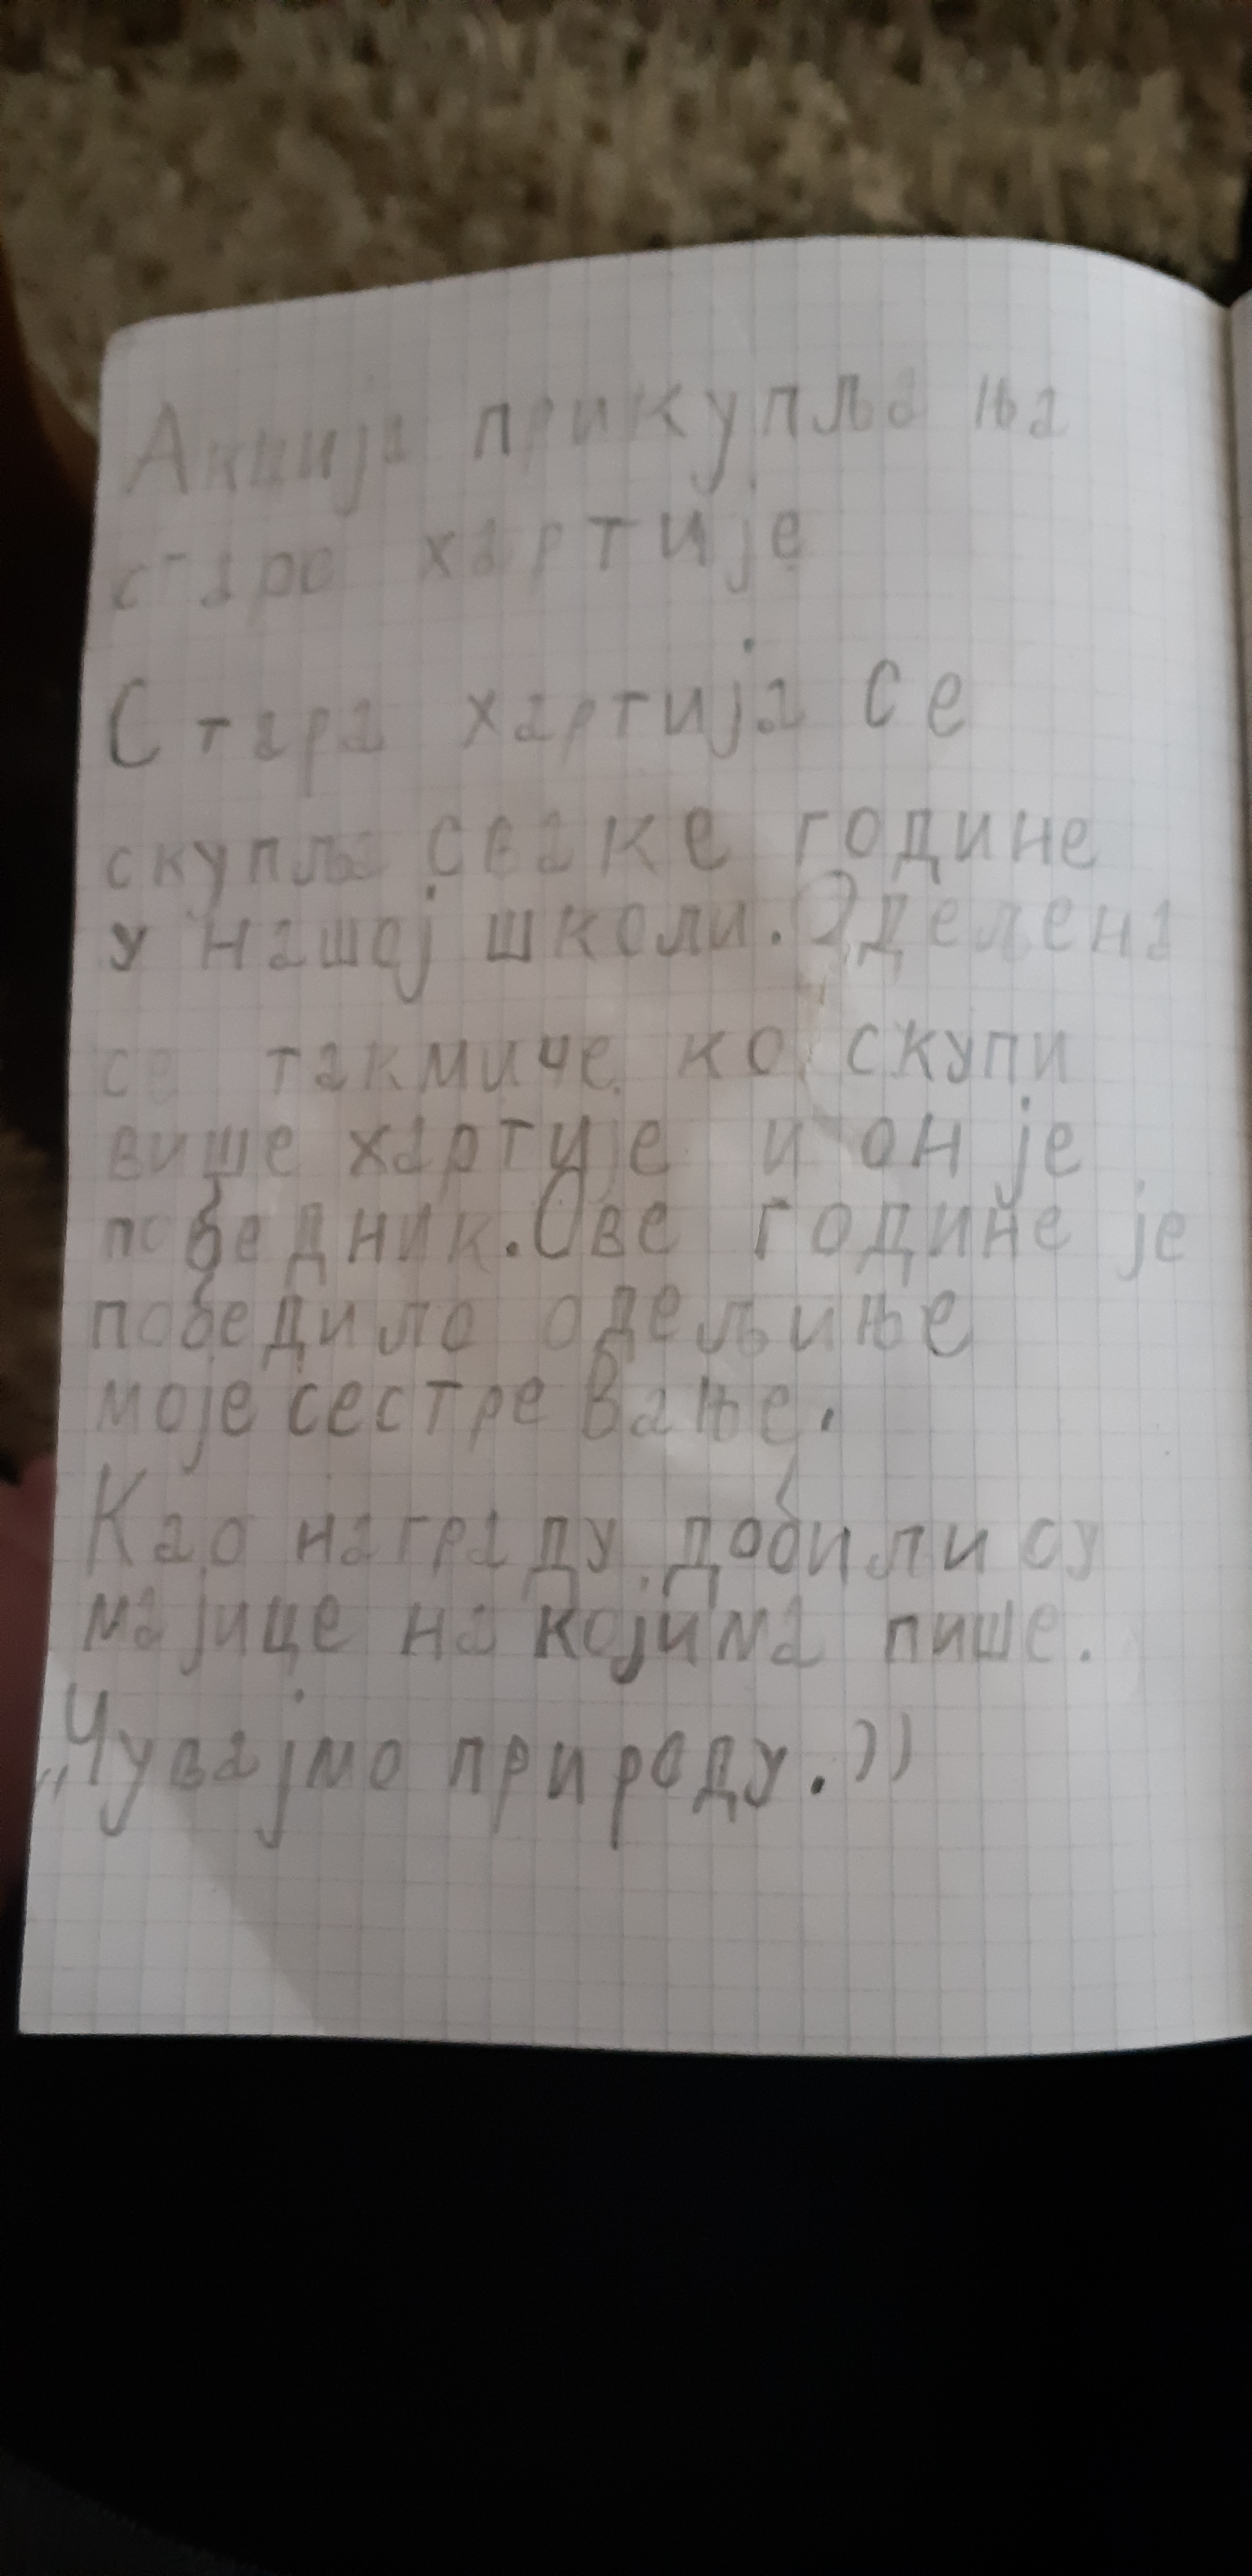 Акција прикупљања
старе хартије
Стара хартија се
скупља сваке године
у нашој школи. Оделена
се такмиче ко скупи
више хартије и он је
победник. Ове године је
победило одељиње
моје сестре Вање.
Као награду добили су
мајице на којима пише.
„Чувајмо природу.))